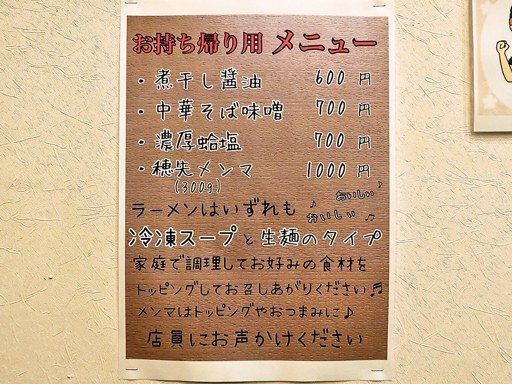 お持ち帰り用 メニュー
・煮干し醤油 600円
・中華そば味噌 700円
・濃厚蛤塩 700円
・穂先メンマ 1000円
(300g)
おいしい♪
ラーメンはいずれも ♪おいしい♫
冷凍スープと生麺のタイプ
家庭で調理してお好みの食材を
トッピングしてお召しあがりください♬
メンマはトッピングやおつまみに♪
店員にお声かけください